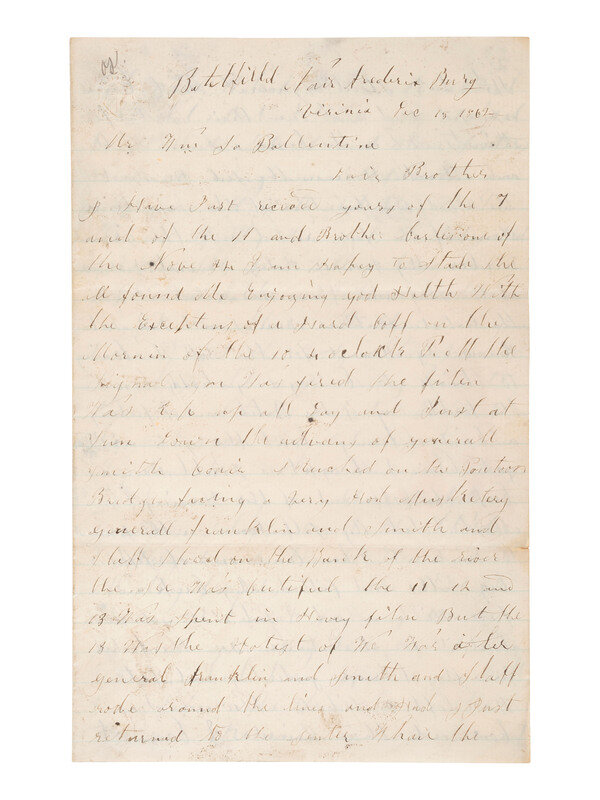 Batelfield Nair Frederix Burg
Virinia Dec 18 1862
Mr Wm Ja Ballentine
Dair Brother
I Have Just recived yours of the 7
and of the 11 and Brother Carlesons of
the Nove I am Hapy to State the
All found Me Enjoying god Health With
the Exceptens of a Hard Coff on the
Mornin of the 10 4 oclok the
signal gun Was fired the firen
Was Kep up all Day and Just at
Sun Down the advans of generall
Smith Core on the Pontoon
Bridge fireing a very Hod Musketery
generall Franklin and Smith and
Staff Stood on the Bank of the river
the See Was butiful the 11 12 and
13 Was Spent in Hevey firen But the
13 Was the Hotest of
general Franklin and Smith and Staff
rode around the lines and Had Just
returned to the Senter Whair the